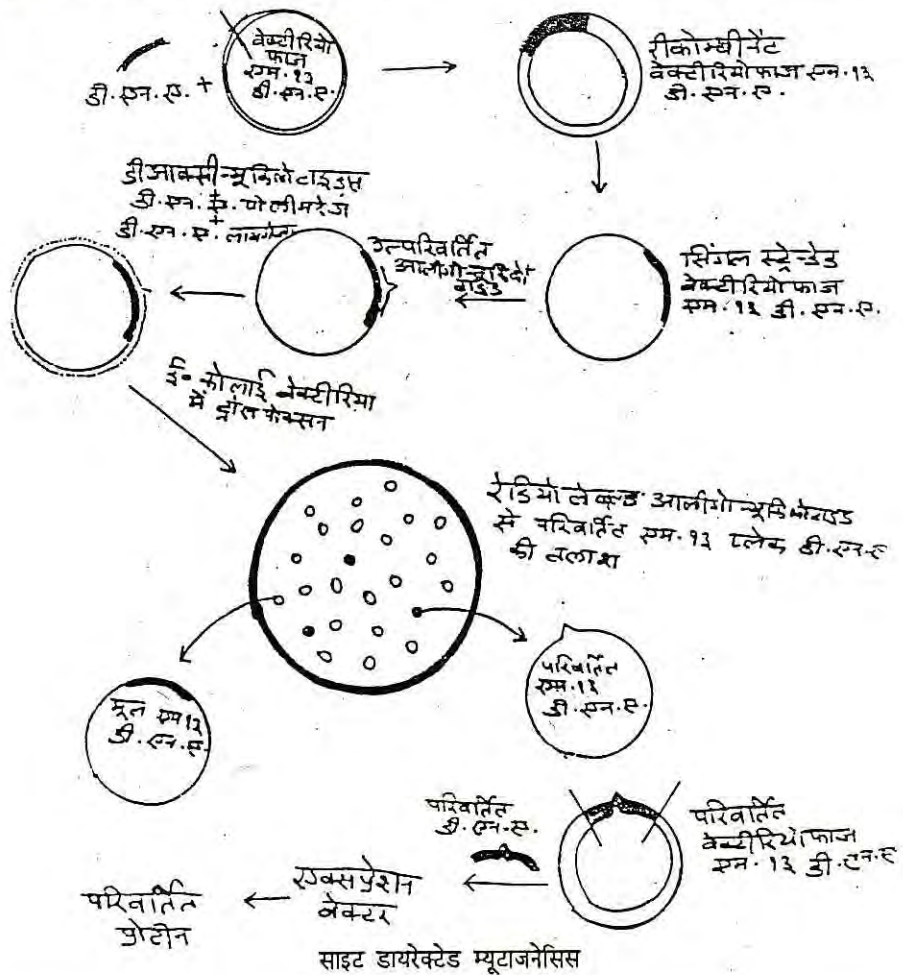 डी.एन.ए. +
बेक्टीरियो
फाज
एम.१३
डी.एन.ए.
रीकोम्बीनैंट
बेक्टीरियोफाज एम.१३
डी.एन.ए.
डीआक्सी-न्यूक्लिोटाइड्स
+
डी.एन.ए. पोलीमरेज
+
डी.एन.ए. लायगेज
उत्परिवर्तित
आलीगो-न्यूक्लियो
टाइड
सिंगल स्ट्रेन्डेड
बेक्टीरियोफाज
एम.१३ डी.एन.ए.
ई. कोलाई बेक्टीरिया
में ट्रांसफेक्सन
रेडियो लेबल्ड आलीगोन्यूक्लियोटाइड
से परिवर्तित एम.१३ प्लेक डी.एन.ए
की तलाश
मूल एम१३
डी.एन.ए.
परिवर्तित
एम.१३
डी.एन.ए.
परिवर्तित
डी.एन.ए.
परिवर्तित
बेक्टीरियोफाज
एम.१३ डी.एन.ए
एक्सप्रेशन
वेक्टर
परिवर्तित
प्रोटीन
साइट डायरेक्टेड म्यूटाजनेसिस